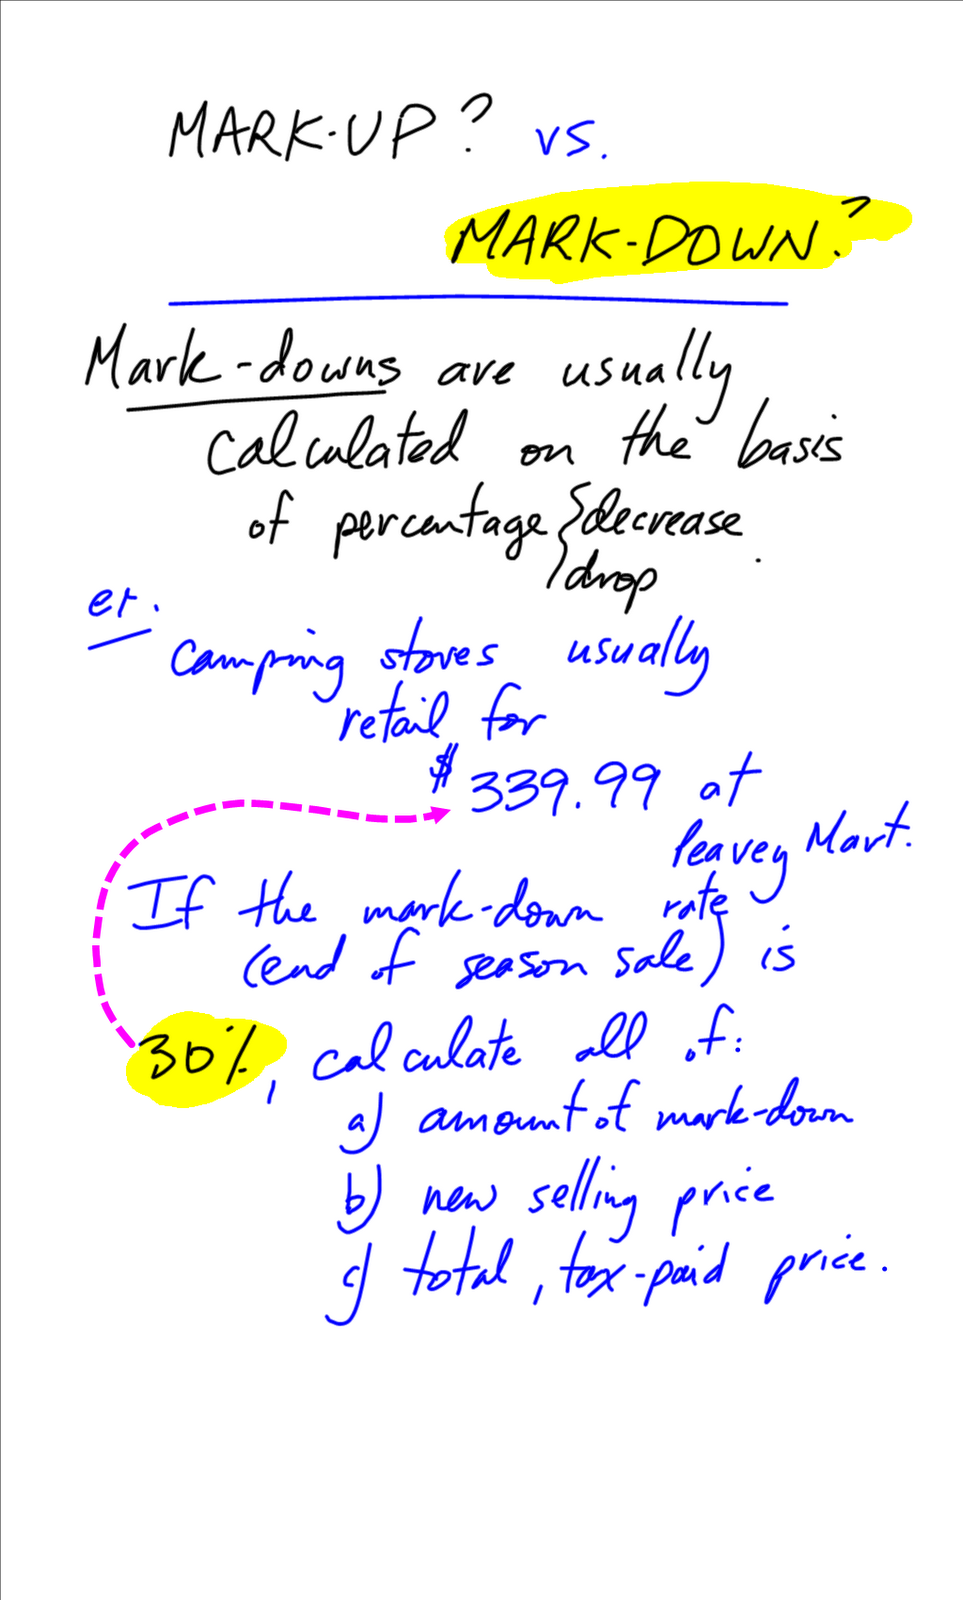 MARK-UP? vs.
MARK-DOWN?
Mark-downs are usually
calculated on the basis
of percentage { decrease
drop .
ex.
camping stoves usually
retail for
$339.99 at
Peavey Mart.
If the mark-down rate
(end of season sale) is
30%, calculate all of:
a) amount of mark-down
b) new selling price
c) total, tax-paid price.